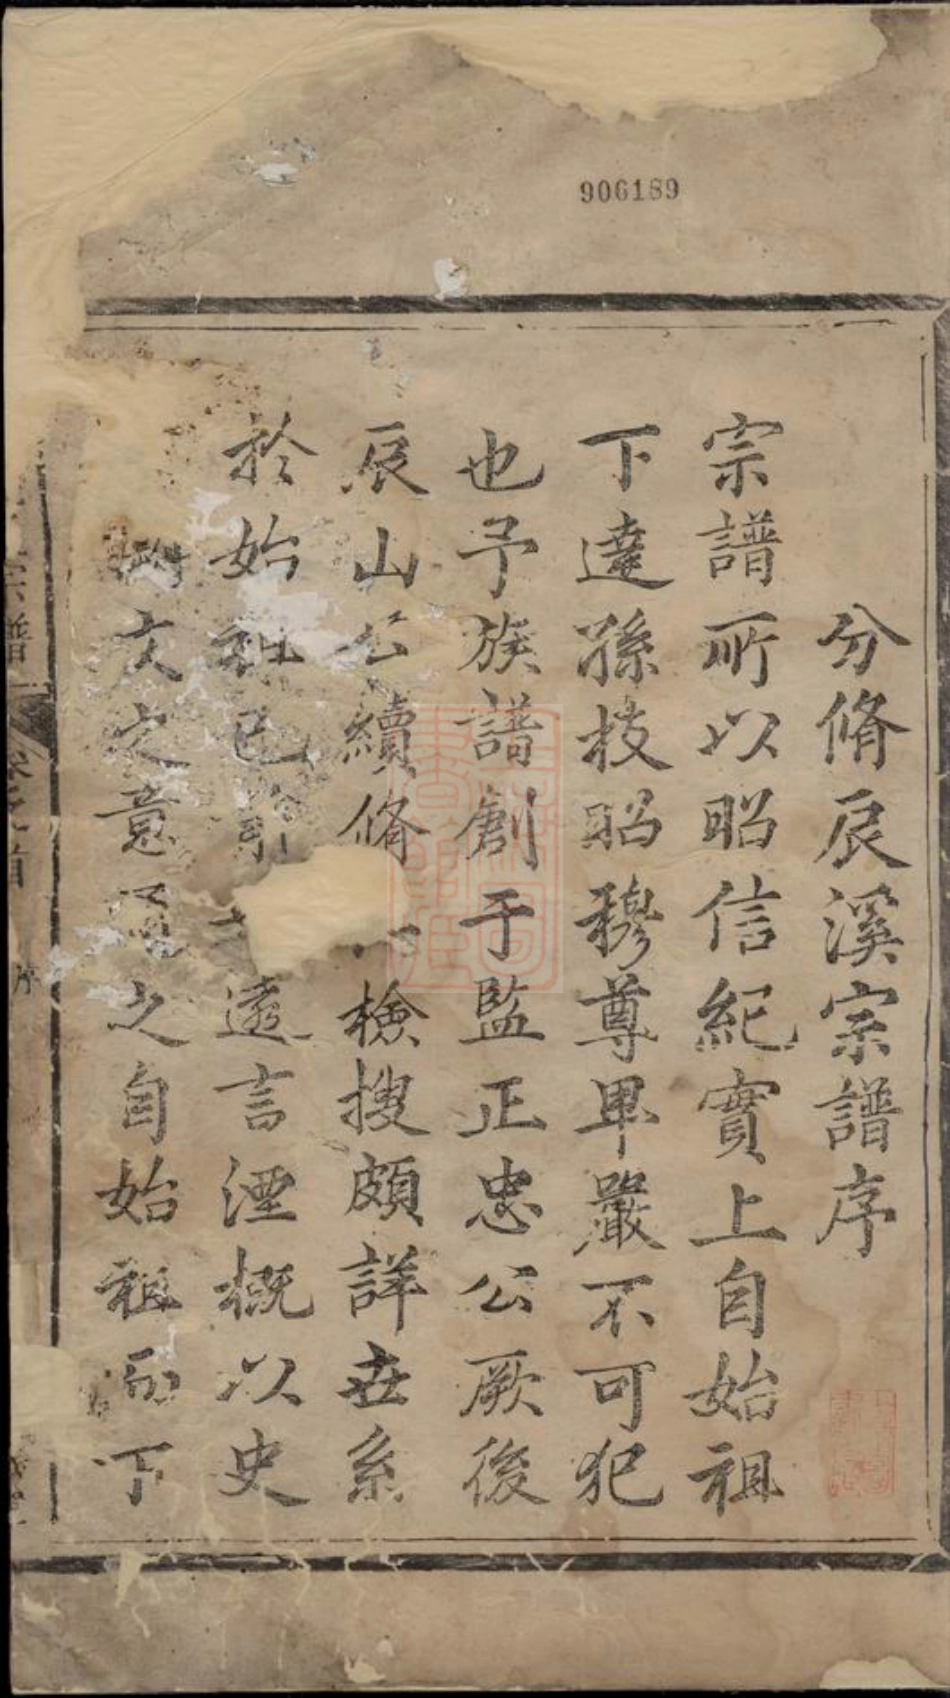 906189
分脩辰溪宗譜序
宗譜所以昭信紀實上自始祖
下達孫枝昭穆尊卑嚴不可犯
也予族譜創于監正忠公厥後
辰山公續脩檢搜頗詳世系
於始祖已前遠言湮概以史
闕文之意通之自始祖而下
宗譜
卷之首
序